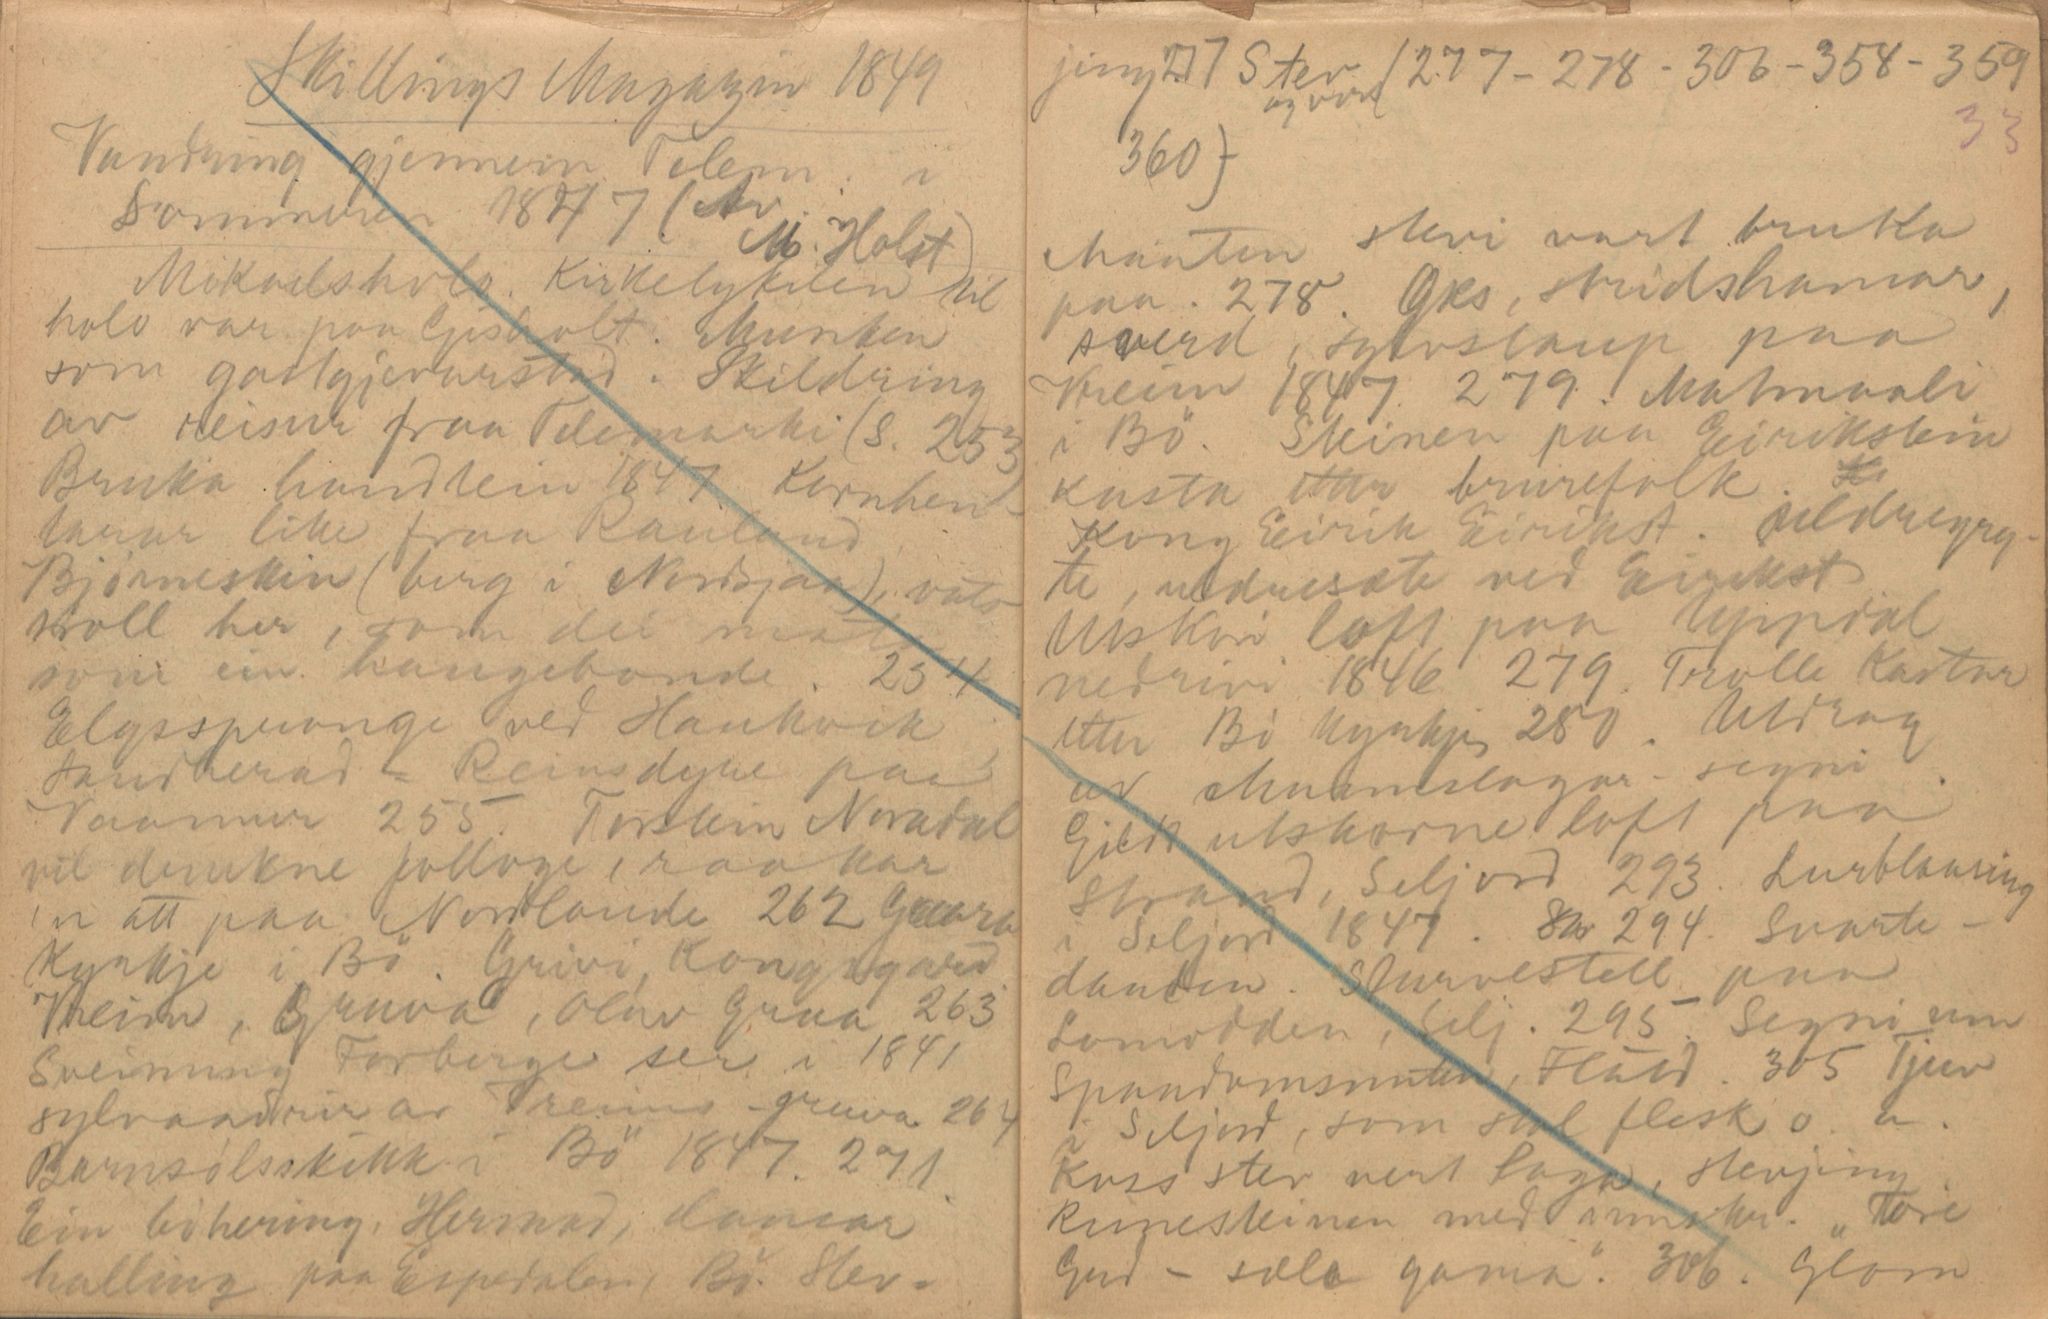 Skillings Magazin 1849
Vandring gjennem Telem. i
Sommeren 1847 (Av
M. Holst)
Mikaelshola. Kirkelykilen til
holo var paa Gisholt. Munken
som godtgjerarstad. Skildring
av reisur fraa Telemarki (S. 253
Bruka handtein 1847 Kornhen-
tarar like fraa Rauland
Bjørneskin (berg i Nordsjaa), vats
troll her, som dei
som ein haugebonde. 254
Elgsspronge ved Haukvik
Sandherad = Reinsdyre paa
Vaamur 255. Torstein Nordal
vil drukne folloge, raakar
'n att paa Nordlande 262 Gaara
Kyrkje i Bö. Grivi, Kongsgard
Vreim, Gruva, Olav Graa 263
Sveinung Forberge ser i 1841
sylvaadrir av Vreims-gruva 264
Barnsölsskikk i Bö 1847. 271.
Ein böhering, Hermod, dansar
halling paa Espedalen, Bö. Stev-
jing 277 Stev (277 - 278 - 306 - 358 - 359
og
33
360)
Maaten stevi vart bruka
paa. 278. Øks, stridshamar,
sverd, sylvstaup paa
Vreim 1847. 279. Matmaali
i Bö. Steinen paa Eirikstein
kasta etter brurefolk.
Kong Eirik Eirikst. Jildregry-
te, ved Eirikst
Utskori loft paa Uppdal
nedrivi 1846 279. Trolle kastar
etter Bö kyrkje 280. Utdrag
av Mannslagar-segni
Gildt utskorne loft paa
Strand, Seljord 293. Lurblaasing
i Seljord 1847. 294. Svarte-
dauden. Sturvestell paa
Lomodden, Selj. 295. Segni um
Spaadomsnuten, Flatd. 305 Tjuv
i Seljord, som stal flesk o. a.
Koss stev vert laga, stevjing.
Runesteinen med innskr. "Tore
Gud - sæla gama". 306. Glom